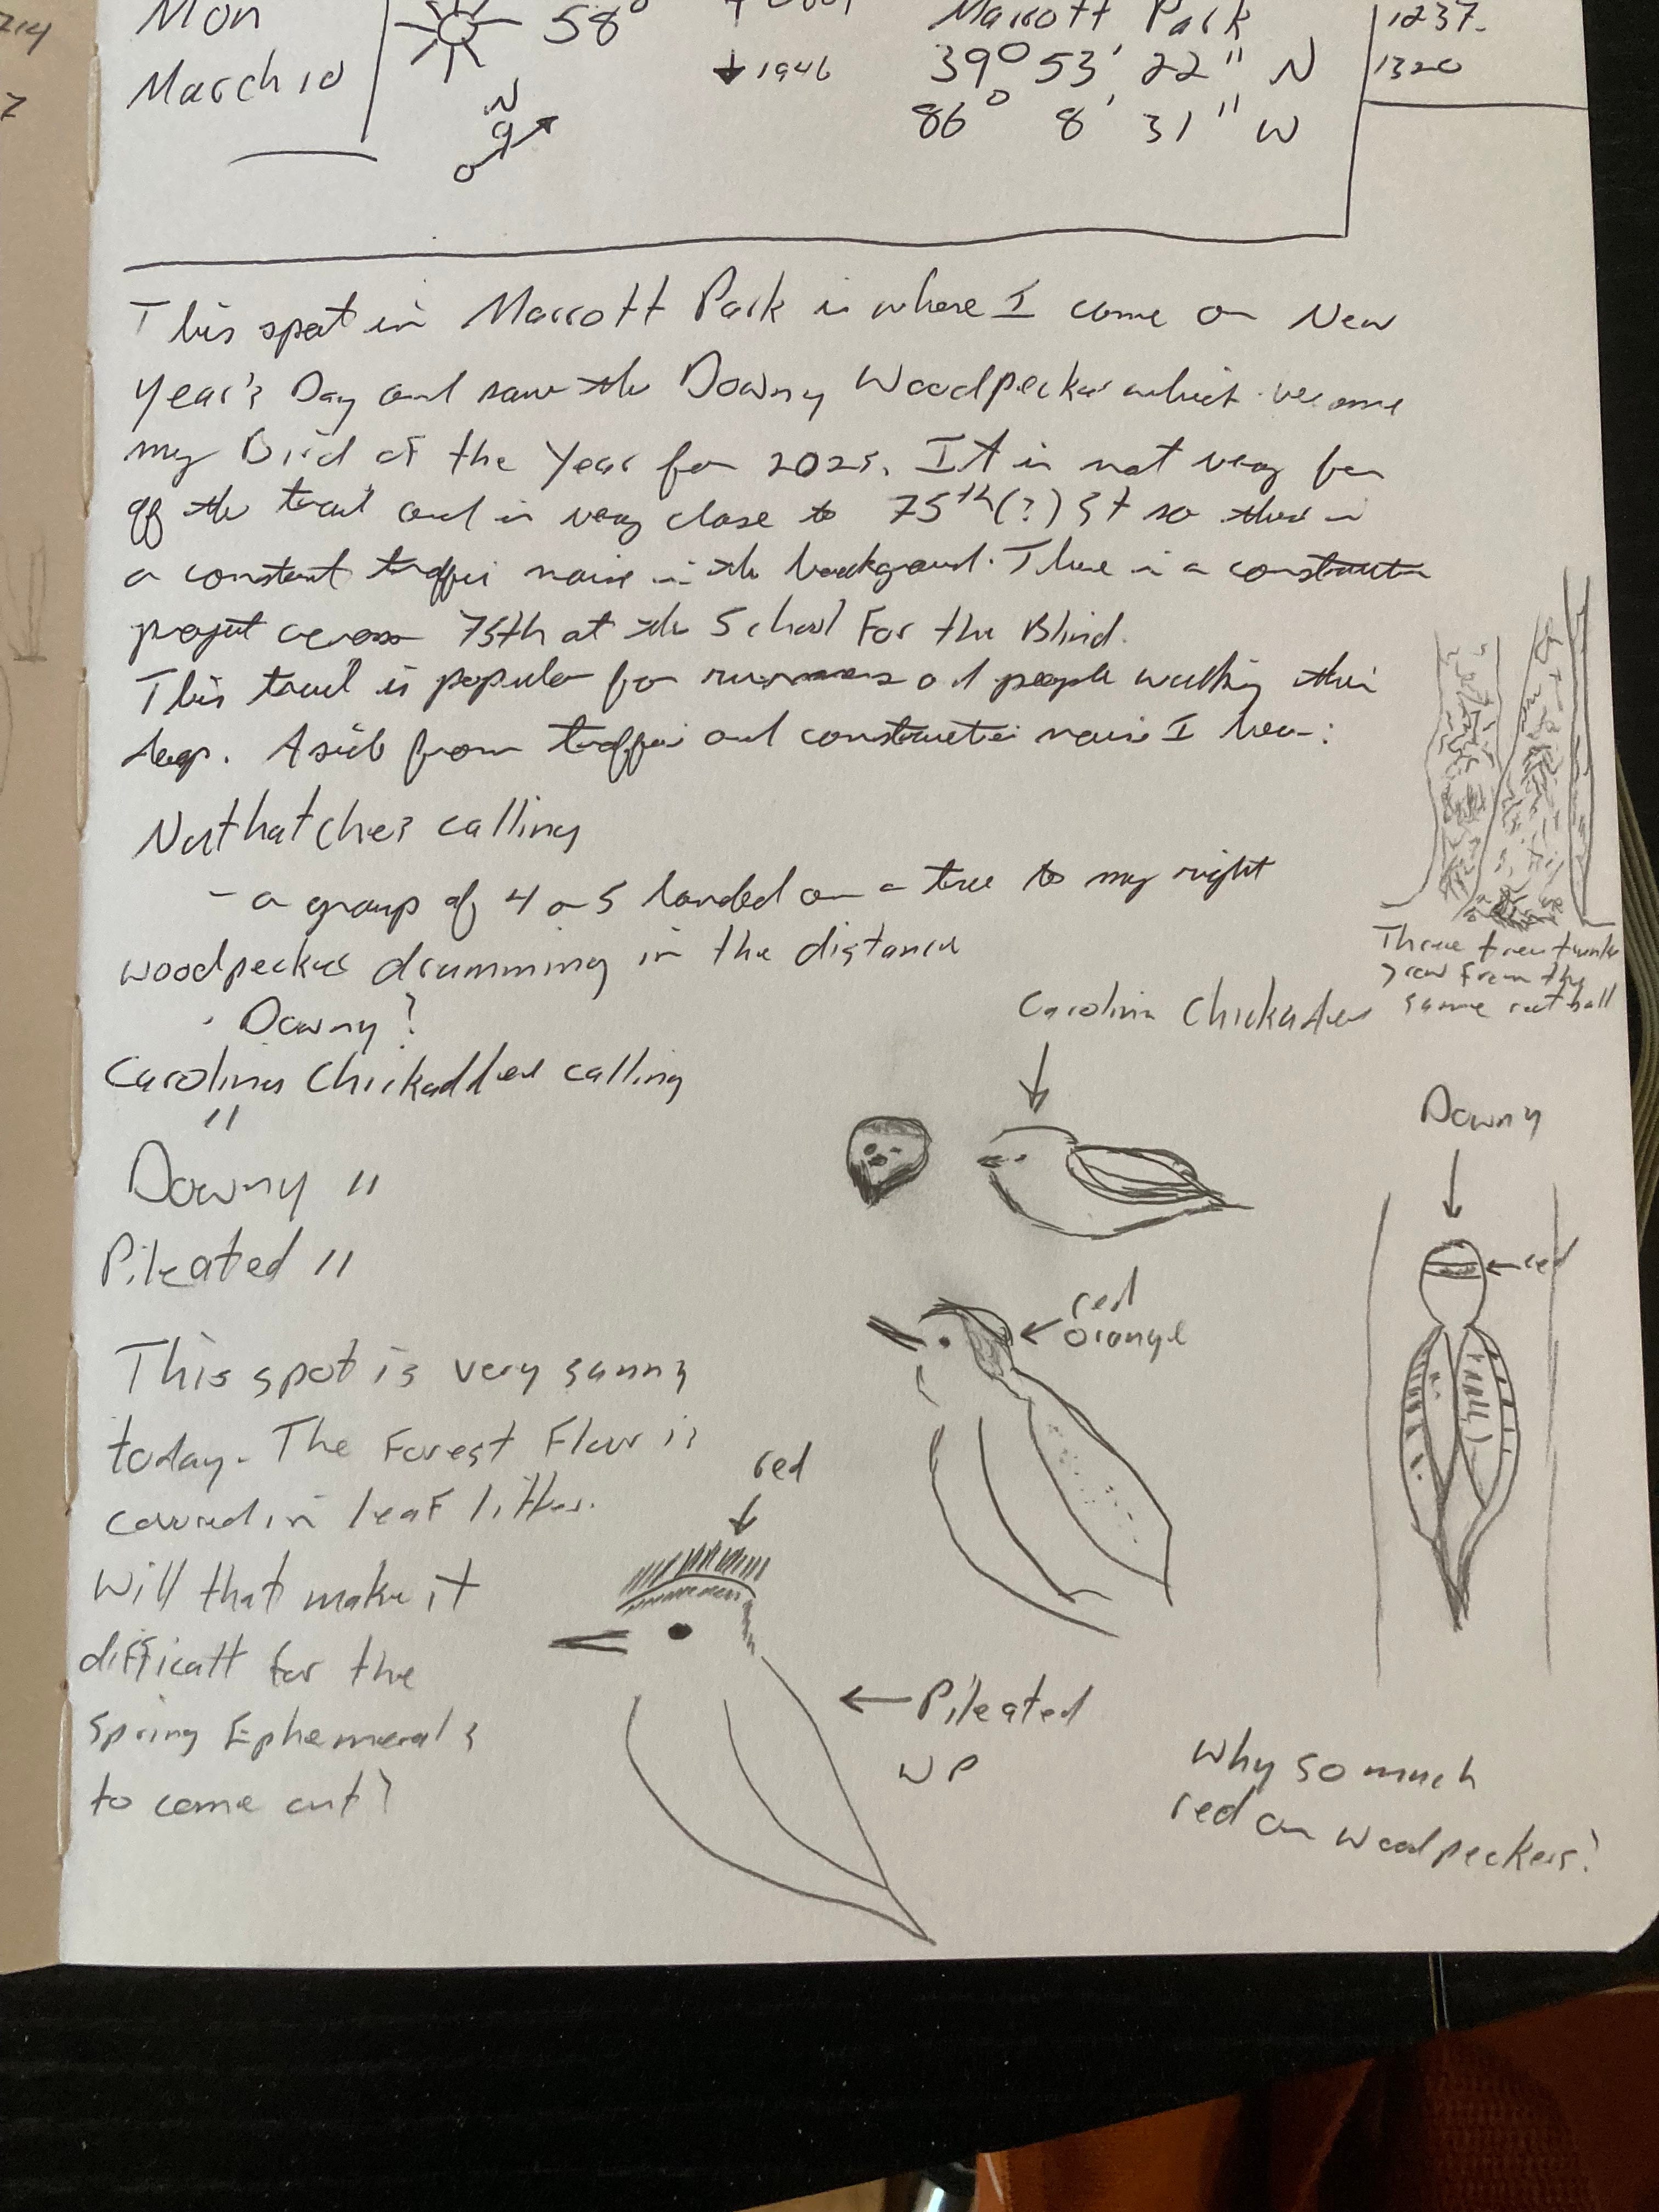 Mon
March 10
58°
N
9
↓ 1946
Marrott Park
39° 53' 22" N
86° 8' 31" W
1237-
1320
This spot in Marrott Park is where I came on New
Year's Day and saw the Downy Woodpecker which became
my Bird of the Year for 2025. It is not very far
off the trail and is very close to 75th(?) St so there is
a constant traffic noise in the background. There is a construction
project across 75th at the School For the Blind.
This trail is popular for runners and people walking their
dogs. Aside from traffic and construction noise I hear:
Nuthatches calling
- a group of 4 or 5 landed on a tree to my right
woodpecker drumming in the distance
· Downy?
Carolina Chickadee calling
"
Downy "
Pileated "
Three tree trunks
grow from the
same root ball
Carolina Chickadee
Downy
red
red
orange
This spot is very sunny
today. The Forest Floor is
covered in leaf litter.
Will that make it
difficult for the
Spring Ephemerals
to come out?
red
Pileated
WP
Why so much
red on woodpeckers?